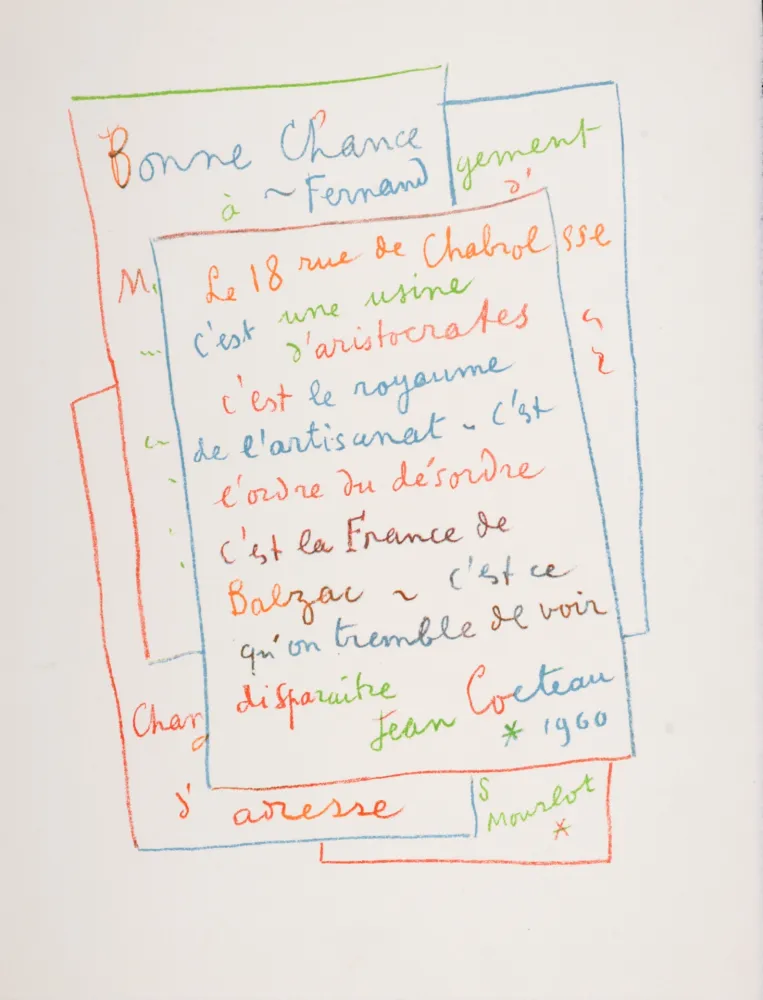 Bonne Chance
à ~ Fernand
gement
d'
sse
Le 18 rue de Chabrol
c'est une usine
d'aristocrates
c'est le royaume
de l'artisanat ~ c'est
l'ordre du désordre
c'est la France de
Balzac ~ c'est ce
qu'on tremble de voir
disparaître
Jean Cocteau
* 1960
Chang
d' adresse
S
Mourlot
*